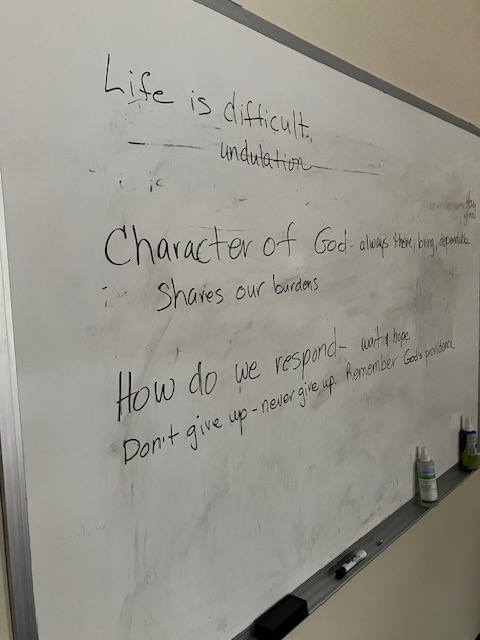 Life is difficult.
undulation
Character of God - always there, loving, dependable
Shares our burdens
How do we respond - wait & hope
Don't give up - never give up. Remember God's providence